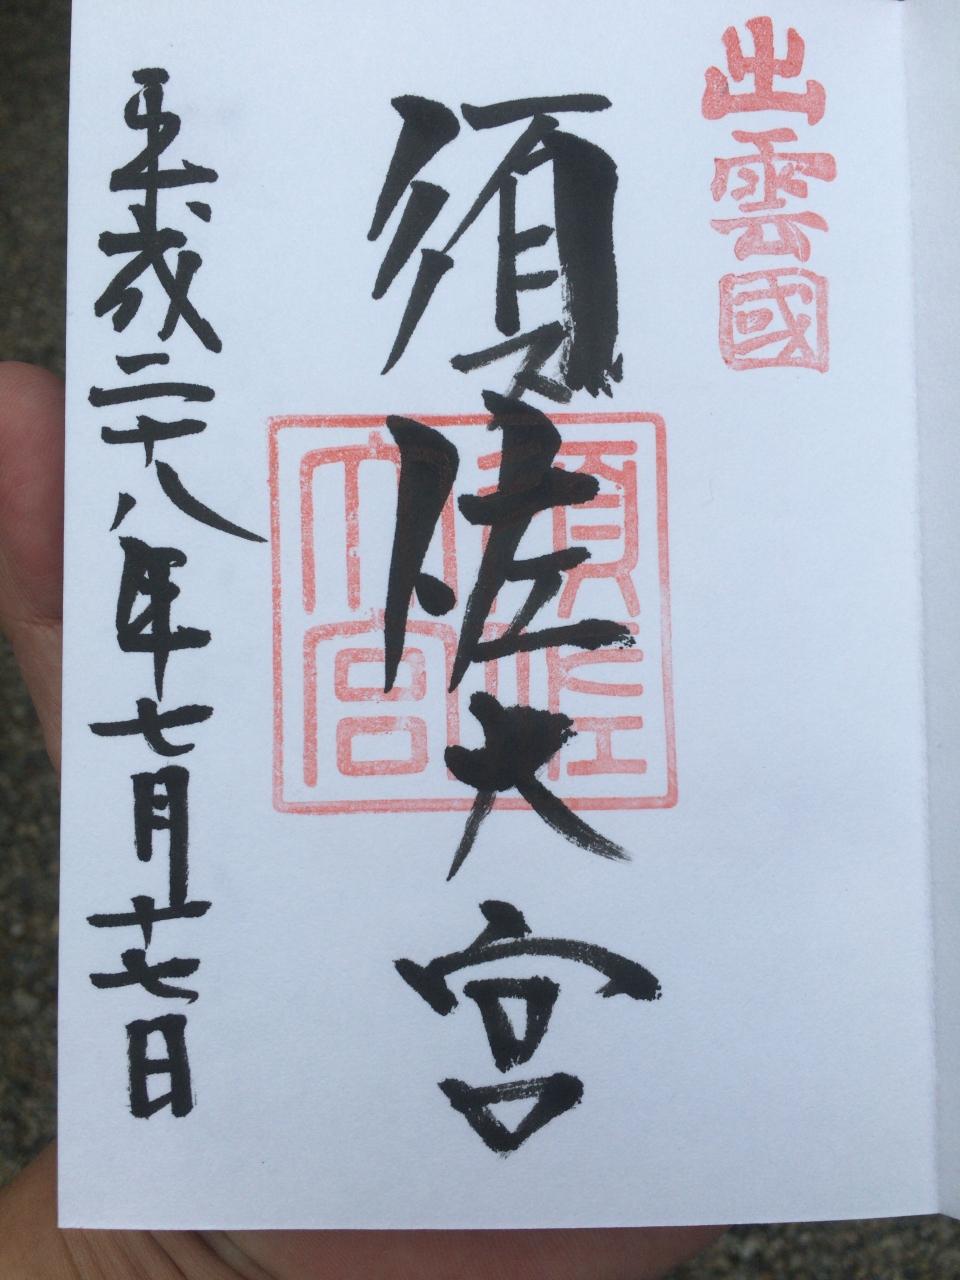 出雲國
須佐大宮
須佐
大宮
平成二十八年七月十七日